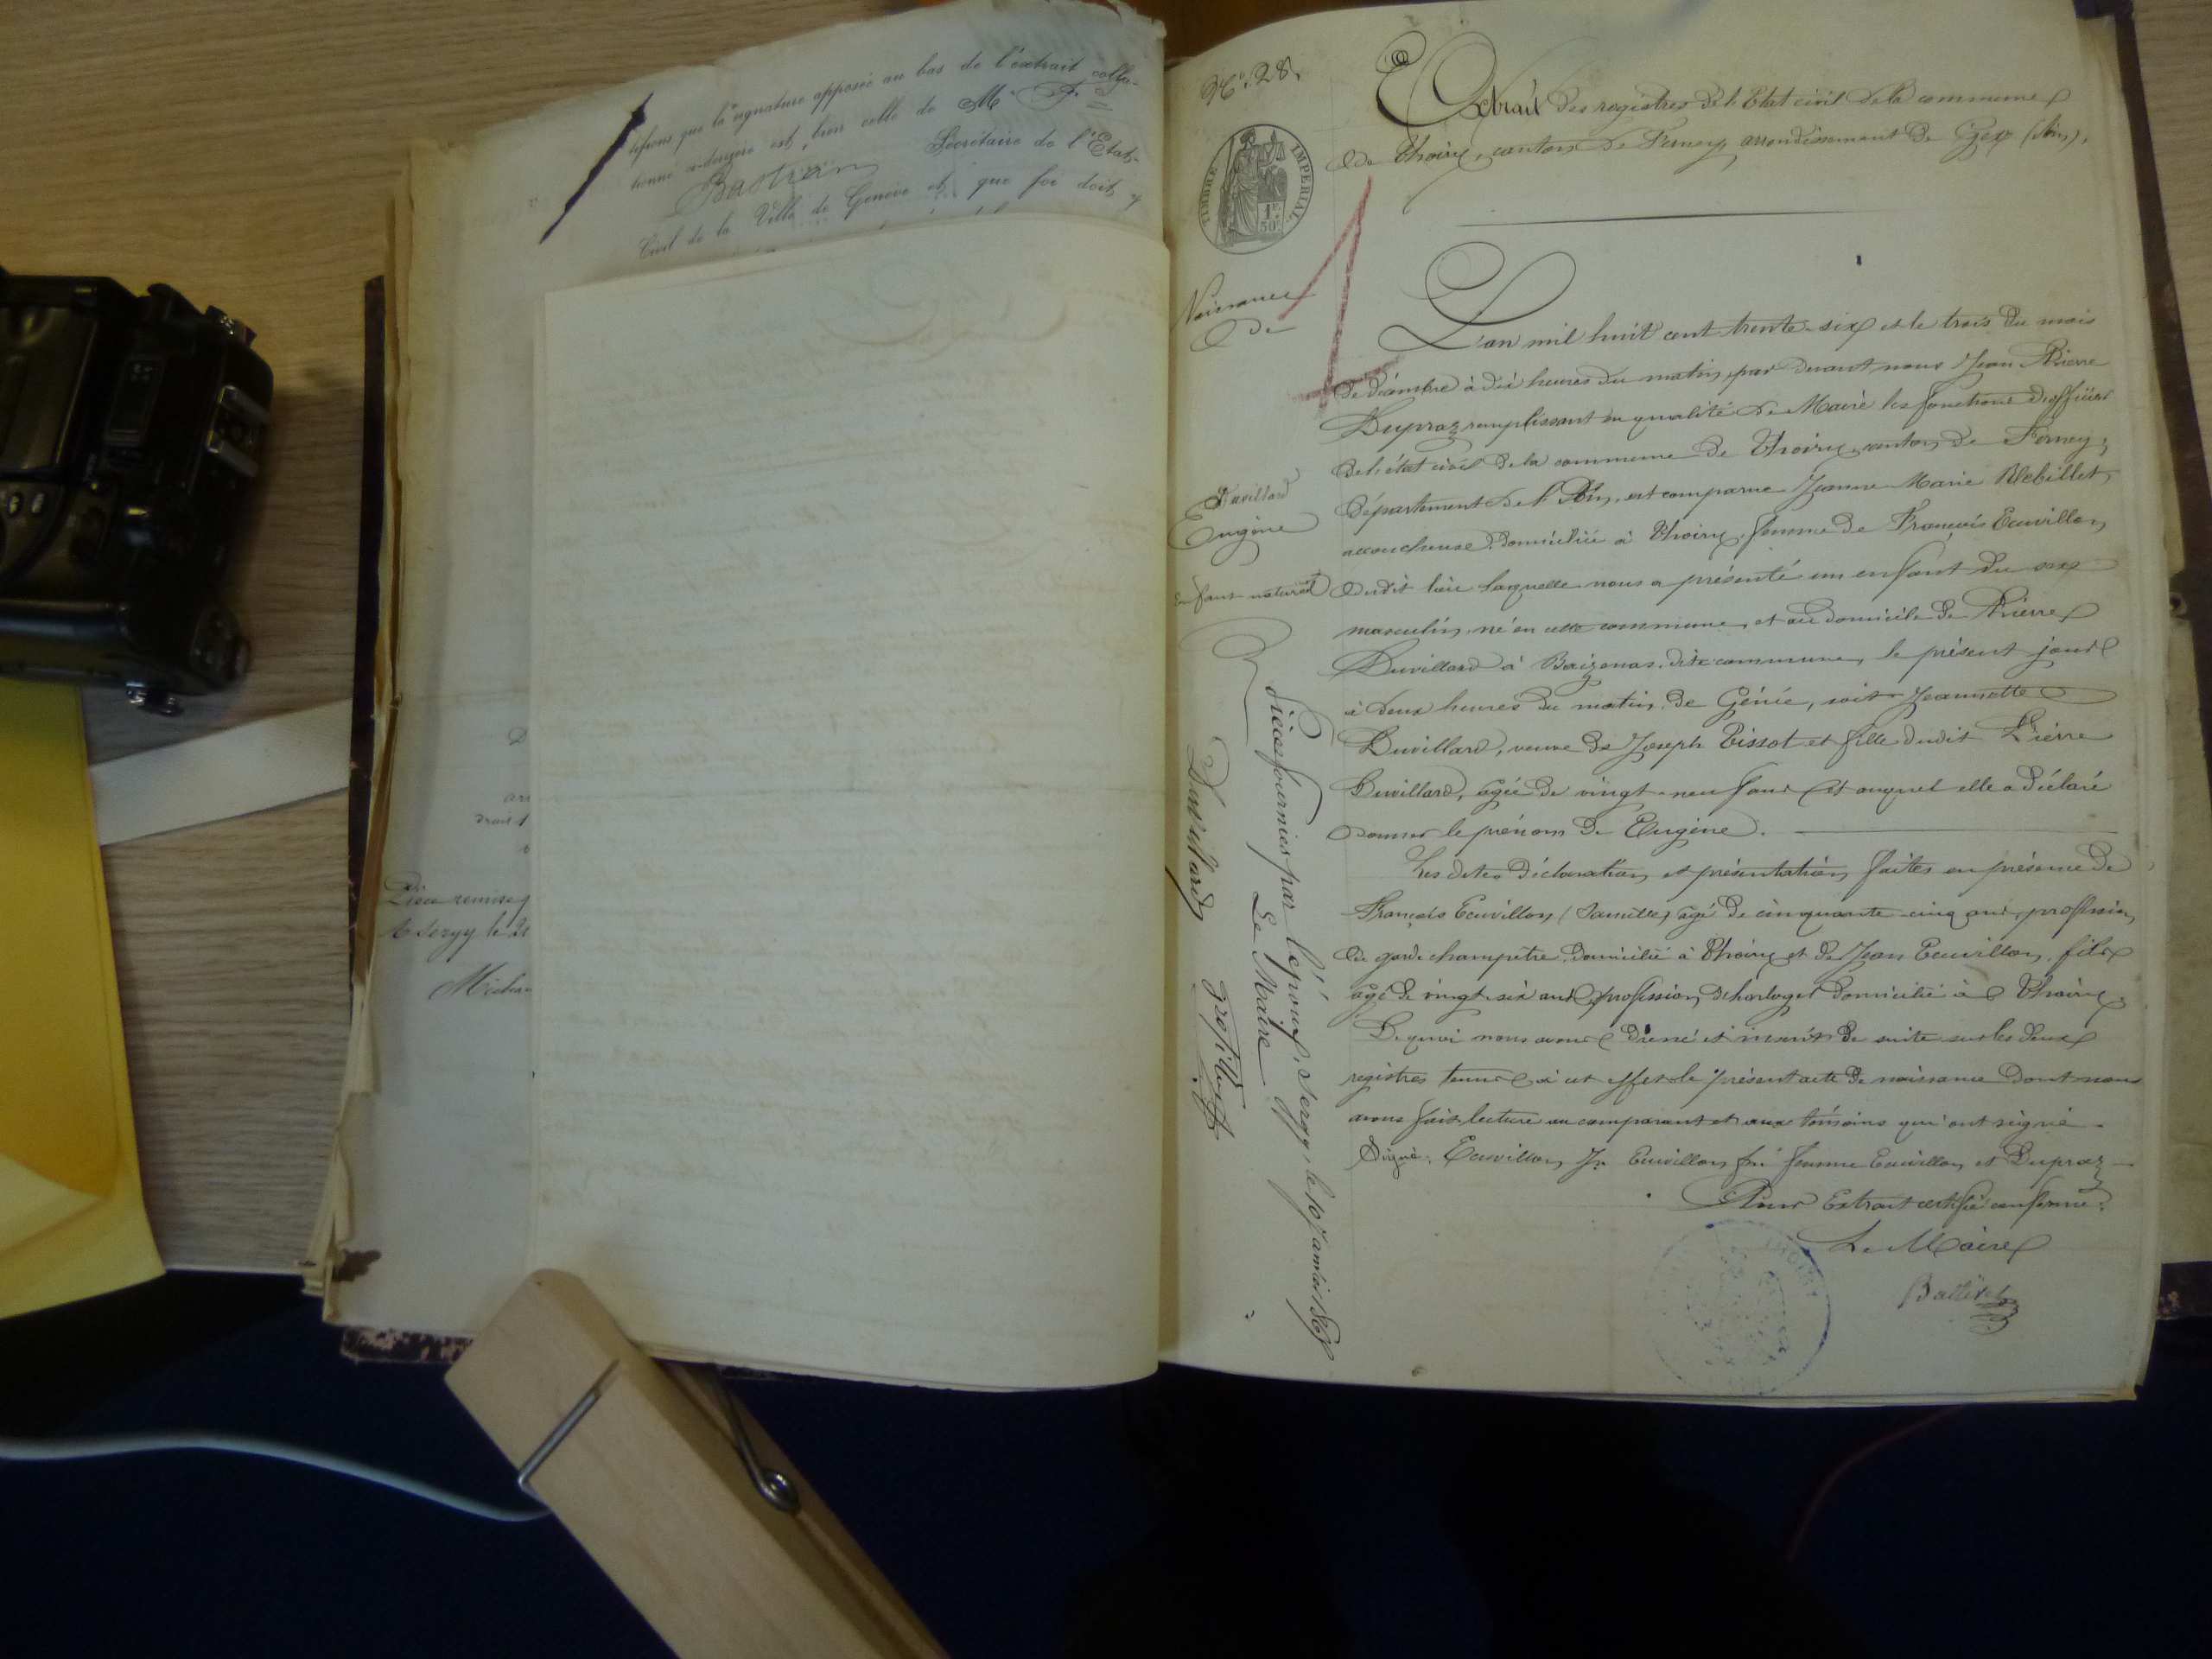 signature apposée au bas de l'extrait
est bien celle de Mr F.
Bastian Secrétaire de l'Etat-
Civil de la Ville de Genève et que foi doit y
droit
Pièce remise
à Sergy le
N° 28.
TIMBRE IMPERIAL
1F 50C
Extrait des registres de l'Etat civil de la commune
de Thoiry, canton de Ferney arrondissement de Gex (Ain).
Naissance
De
Duvillard
Eugène
enfant naturel
L'an mil huit cent trente-six et le trois du mois
de décembre à dix heures du matin, par devant nous Jean Pierre
Dupraz remplissant en qualité de Maire les fonctions d'officier
de l'état civil de la commune de Thoiry, canton de Ferney,
département de l'Ain, est comparue Jeanne Marie
accoucheuse, domiciliée à Thoiry, femme de François Ecuvillon,
dudit lieu laquelle nous a présenté un enfant du sexe
masculin, né en cette commune, et au domicile de Pierre
Duvillard à dite commune, le présent jour
à deux heures du matin, de Génie, soit Jeannette
Duvillard, veuve de Joseph Tissot et fille dudit Pierre
Duvillard, agée de vingt-neuf ans et auquel elle a déclaré
donner le prénom de Eugène.
Les dites déclaration et présentation faites en présence de
François Ecuvillon, agé de cinquante cinq ans, profession
de garde champêtre, domicilié à Thoiry et de Jean Ecuvillon, fils
agé de vingt-six ans, profession d'horloger domicilié à Thoiry.
De quoi nous avons dressé et inscrit de suite sur les deux
registres tenus à cet effet le présent acte de naissance dont nous
avons fait lecture au comparant et aux témoins qui ont signé.
Signé: Ecuvillon, Jn Ecuvillon fri femme Ecuvillon et Dupraz
Pour Extrait certifié conforme.
Le Maire
THOIRY
Pièces fournies par l'époux, Sergy, le 10 Janvier 1867
Le Maire
Duvillard